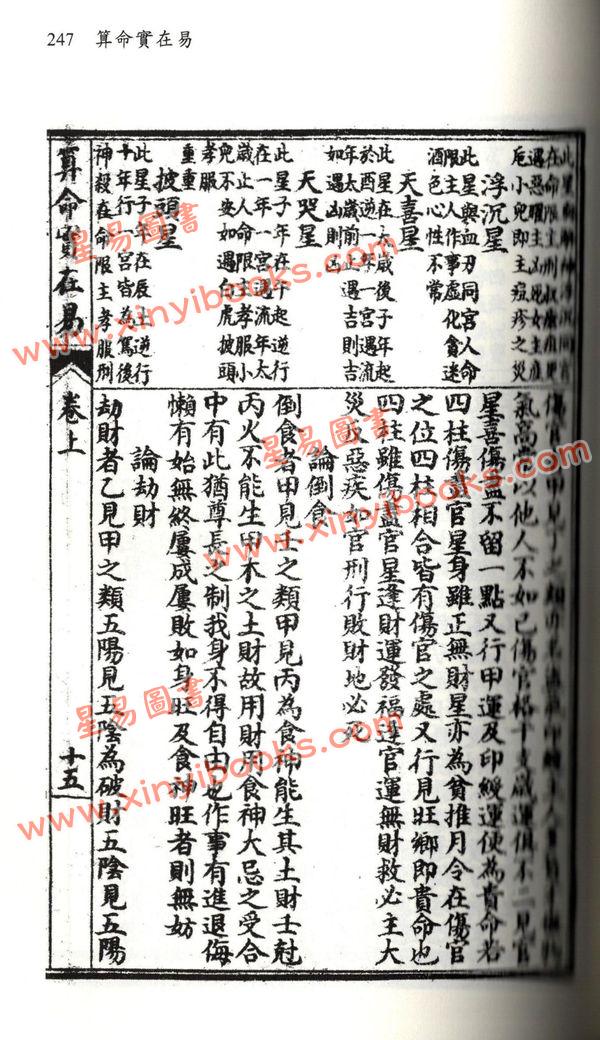 247 算命實在易
浮沉星
此星與血刃同宮人命
限主人作事虛化貪迷
酒色心性不常
天喜星
此星在六歲後子年起
於酉逆一年一宮遇流
年太歲前一正遇吉則吉
如遇凶則凶
天哭星
此星子年在午起逆行
在一年一宮遇流年太
歲止人命限主孝服小
兒不安如遇白虎披頭
孝服
重重
披頭星
此星子年在辰上逆行
十年行一宮皆為駕後
神殺在命限主孝服刑
氣高官以他人不如己傷官格干支歲運俱不二見官
星喜傷盡不留一點又行甲運及印綬運便為貴命若
四柱傷盡官星身雖正無財星亦為貧推月令在傷官
之位四柱相合皆有傷官之處又行見旺鄉即貴命也
四柱雖傷盡官星逢財運發福逢官運無財救必主大
災或惡疾如官刑行敗財地必死
論倒食
倒食者甲見壬之類甲見丙為食神能生其土財壬尅
丙火不能生甲木之土財故用財用食神大忌之受合
中有此猶尊長之制我身不得自由也作事有進退悔
懶有始無終屢成屢敗如身旺及食神旺者則無妨
論劫財
劫財者乙見甲之類五陽見五陰為破財五陰見五陽
算命實在易 卷上 十五
星易圖書
www.xinyibooks.com
星易圖書
www.xinyibooks.com
星易圖書
www.xinyibooks.com